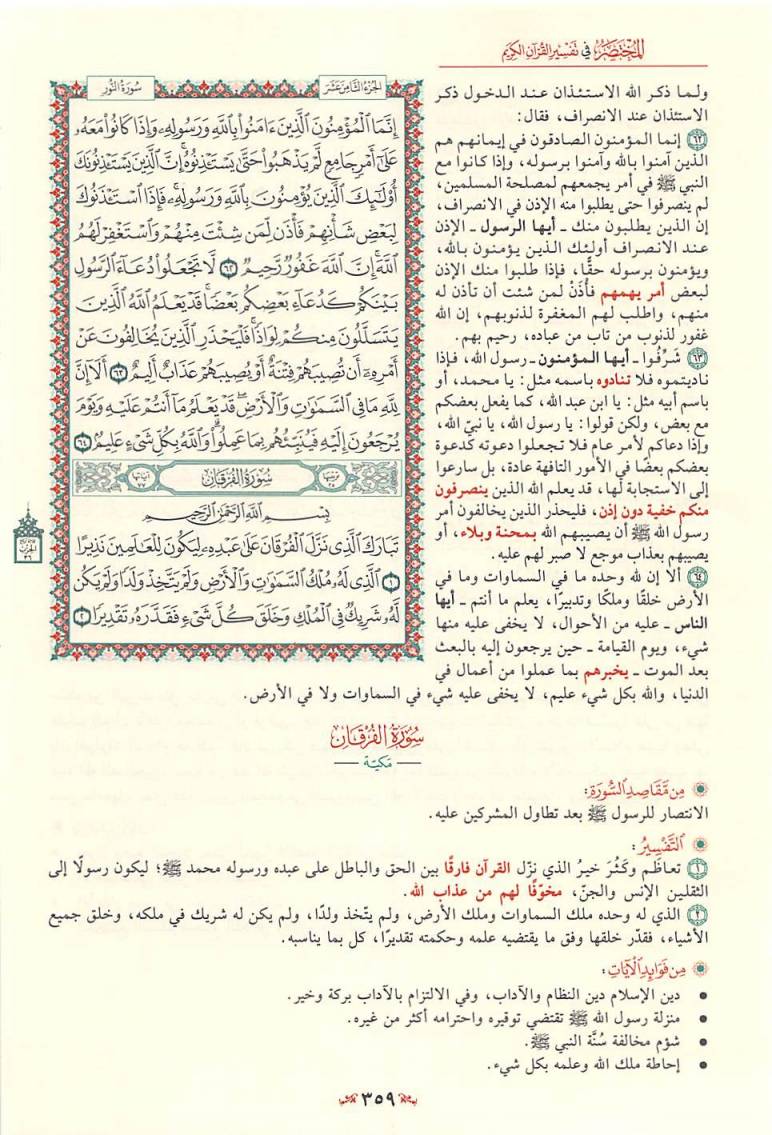 المختصر في تفسير القرآن الكريم
ولما ذكر الله الاستئذان عند الدخول ذكر
الاستئذان عند الانصراف، فقال:
٦٢ إنما المؤمنون الصادقون في إيمانهم هم
الذين آمنوا بالله وآمنوا برسوله، وإذا كانوا مع
النبي ﷺ في أمر يجمعهم لمصلحة المسلمين،
لم ينصرفوا حتى يطلبوا منه الإذن في الانصراف،
إن الذين يطلبون منك ـ أيها الرسول ـ الإذن
عند الانصراف أولئك الذين يؤمنون بالله،
ويؤمنون برسوله حقًّا، فإذا طلبوا منك الإذن
لبعض أمر يهمهم فأذَنْ لمن شئت أن تأذن له
منهم، واطلب لهم المغفرة لذنوبهم، إن الله
غفور لذنوب من تاب من عباده، رحيم بهم.
٦٣ شَرِّفُوا ـ أيها المؤمنون ـ رسول الله، فإذا
ناديتموه فلا تنادوه باسمه مثل: يا محمد، أو
باسم أبيه مثل: يا ابن عبد الله، كما يفعل بعضكم
مع بعض، ولكن قولوا: يا رسول الله، يا نبي الله،
وإذا دعاكم لأمر عام فلا تجعلوا دعوته كدعوة
بعضكم بعضًا في الأمور التافهة عادة، بل سارعوا
إلى الاستجابة لها، قد يعلم الله الذين ينصرفون
منكم خفية دون إذن، فليحذر الذين يخالفون أمر
رسول الله ﷺ أن يصيبهم الله بمحنة وبلاء، أو
يصيبهم بعذاب موجع لا صبر لهم عليه.
٦٤ ألا إن لله وحده ما في السماوات وما في
الأرض خلقًا وملكًا وتدبيرًا، يعلم ما أنتم ـ أيها
الناس ـ عليه من الأحوال، لا يخفى عليه منها
شيء، ويوم القيامة ـ حين يرجعون إليه بالبعث
بعد الموت ـ يخبرهم بما عملوا من أعمال في
الدنيا، والله بكل شيء عليم، لا يخفى عليه شيء في السماوات ولا في الأرض.
الجزء الثامن عشر
سورة النور
إِنَّمَا الْمُؤْمِنُونَ الَّذِينَ ءَامَنُوا بِاللَّهِ وَرَسُولِهِ وَإِذَا كَانُوا مَعَهُ
عَلَىٰ أَمْرٍ جَامِعٍ لَّمْ يَذْهَبُوا حَتَّىٰ يَسْتَـْٔذِنُوهُ إِنَّ الَّذِينَ يَسْتَـْٔذِنُونَكَ
أُولَٰئِكَ الَّذِينَ يُؤْمِنُونَ بِاللَّهِ وَرَسُولِهِ فَإِذَا اسْتَـْٔذَنُوكَ
لِبَعْضِ شَأْنِهِمْ فَأْذَن لِّمَن شِئْتَ مِنْهُمْ وَاسْتَغْفِرْ لَهُمُ
اللَّهَ إِنَّ اللَّهَ غَفُورٌ رَّحِيمٌ ٦٢ لَّا تَجْعَلُوا دُعَاءَ الرَّسُولِ
بَيْنَكُمْ كَدُعَاءِ بَعْضِكُم بَعْضًا قَدْ يَعْلَمُ اللَّهُ الَّذِينَ
يَتَسَلَّلُونَ مِنكُمْ لِوَاذًا فَلْيَحْذَرِ الَّذِينَ يُخَالِفُونَ عَنْ
أَمْرِهِ أَن تُصِيبَهُمْ فِتْنَةٌ أَوْ يُصِيبَهُمْ عَذَابٌ أَلِيمٌ ٦٣ أَلَا إِنَّ
لِلَّهِ مَا فِي السَّمَٰوَٰتِ وَالْأَرْضِ قَدْ يَعْلَمُ مَا أَنتُمْ عَلَيْهِ وَيَوْمَ
يُرْجَعُونَ إِلَيْهِ فَيُنَبِّئُهُم بِمَا عَمِلُوا وَاللَّهُ بِكُلِّ شَيْءٍ عَلِيمٌ ٦٤
ترتيبها ٢٥ سورة الفرقان آياتها ٧٧
بِسْمِ اللَّهِ الرَّحْمَٰنِ الرَّحِيمِ
تَبَارَكَ الَّذِي نَزَّلَ الْفُرْقَانَ عَلَىٰ عَبْدِهِ لِيَكُونَ لِلْعَالَمِينَ نَذِيرًا
١ الَّذِي لَهُ مُلْكُ السَّمَٰوَٰتِ وَالْأَرْضِ وَلَمْ يَتَّخِذْ وَلَدًا وَلَمْ يَكُن
لَّهُ شَرِيكٌ فِي الْمُلْكِ وَخَلَقَ كُلَّ شَيْءٍ فَقَدَّرَهُ تَقْدِيرًا ٢
الحزب
٣٦
سورة الفرقان
— مكية —
من مقاصد السورة:
الانتصار للرسول ﷺ بعد تطاول المشركين عليه.
التفسير:
١ تعاظَم وكَثُر خيرُ الذي نزّل القرآن فارقًا بين الحق والباطل على عبده ورسوله محمد ﷺ؛ ليكون رسولًا إلى
الثقلين الإنس والجنّ، مخوّفًا لهم من عذاب الله.
٢ الذي له وحده ملك السماوات وملك الأرض، ولم يتّخذ ولدًا، ولم يكن له شريك في ملكه، وخلق جميع
الأشياء، فقدّر خلقها وفق ما يقتضيه علمه وحكمته تقديرًا، كل بما يناسبه.
من فوائد الآيات:
• دين الإسلام دين النظام والآداب، وفي الالتزام بالآداب بركة وخير.
• منزلة رسول الله ﷺ تقتضي توقيره واحترامه أكثر من غيره.
• شؤم مخالفة سُنَّة النبي ﷺ.
• إحاطة ملك الله وعلمه بكل شيء.
٣٥٩